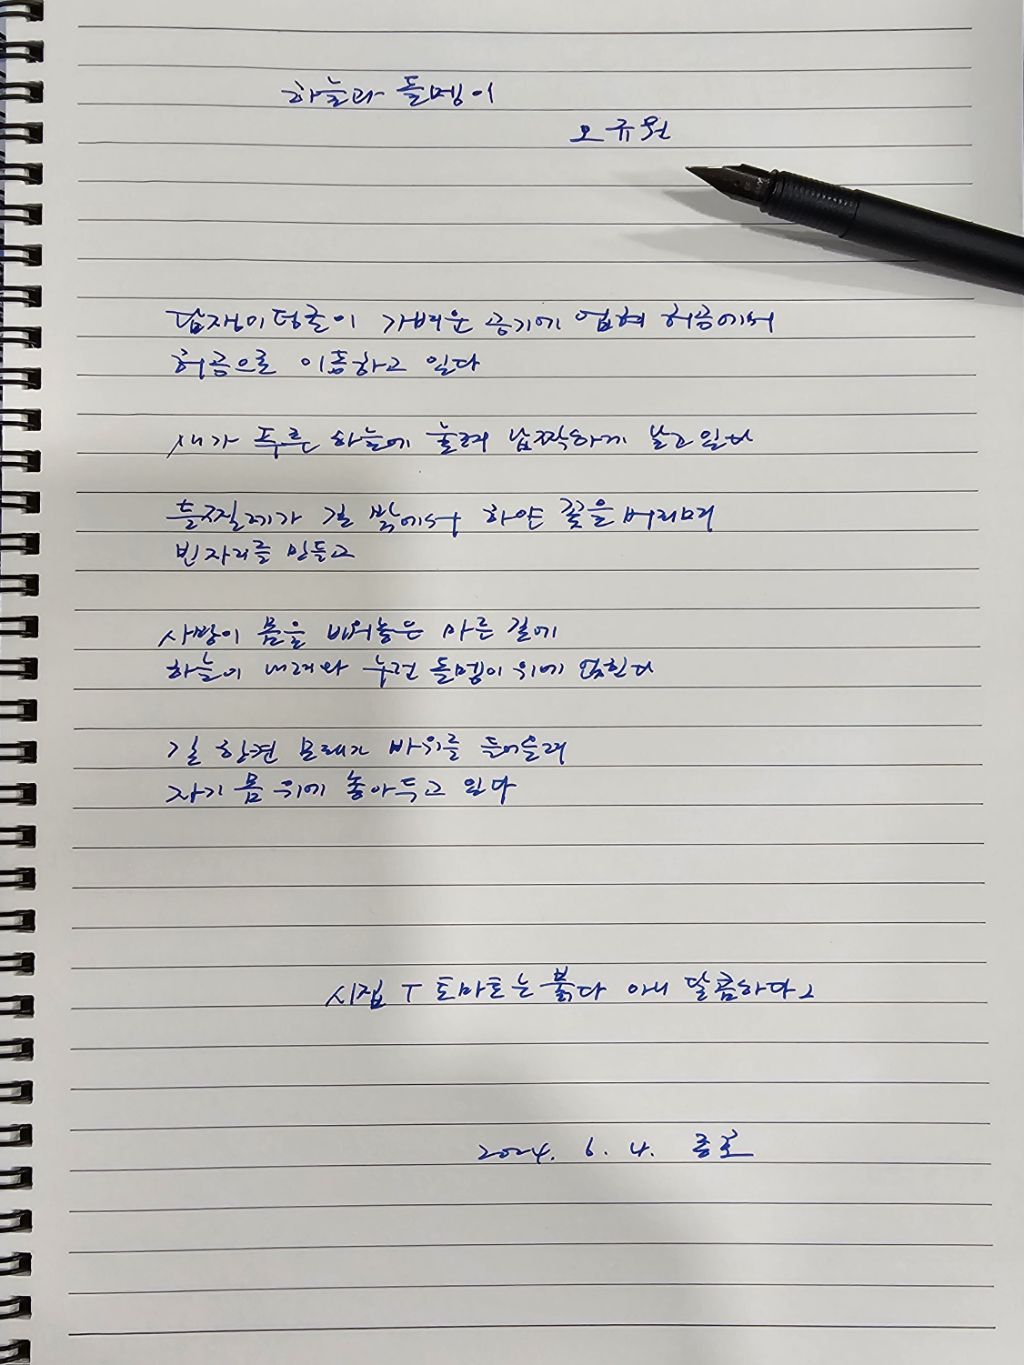 하늘과 돌멩이
오규원
담쟁이덩굴이 가벼운 공기에 업혀 허공에서
허공으로 이동하고 있다
새가 푸른 하늘에 눌려 납짝하게 날고 있다
들찔레가 길 밖에서 하얀 꽃을 버리며
빈자리를 만들고
사방이 몸을 비워놓은 마른 길에
하늘이 내려와 누런 돌멩이 위에 얹힌다
길 한켠 모래가 바위를 들어올려
자기 몸 위에 놓아두고 있다
시집 「토마토는 붉다 아니 달콤하다」
2024. 6. 4. 종로